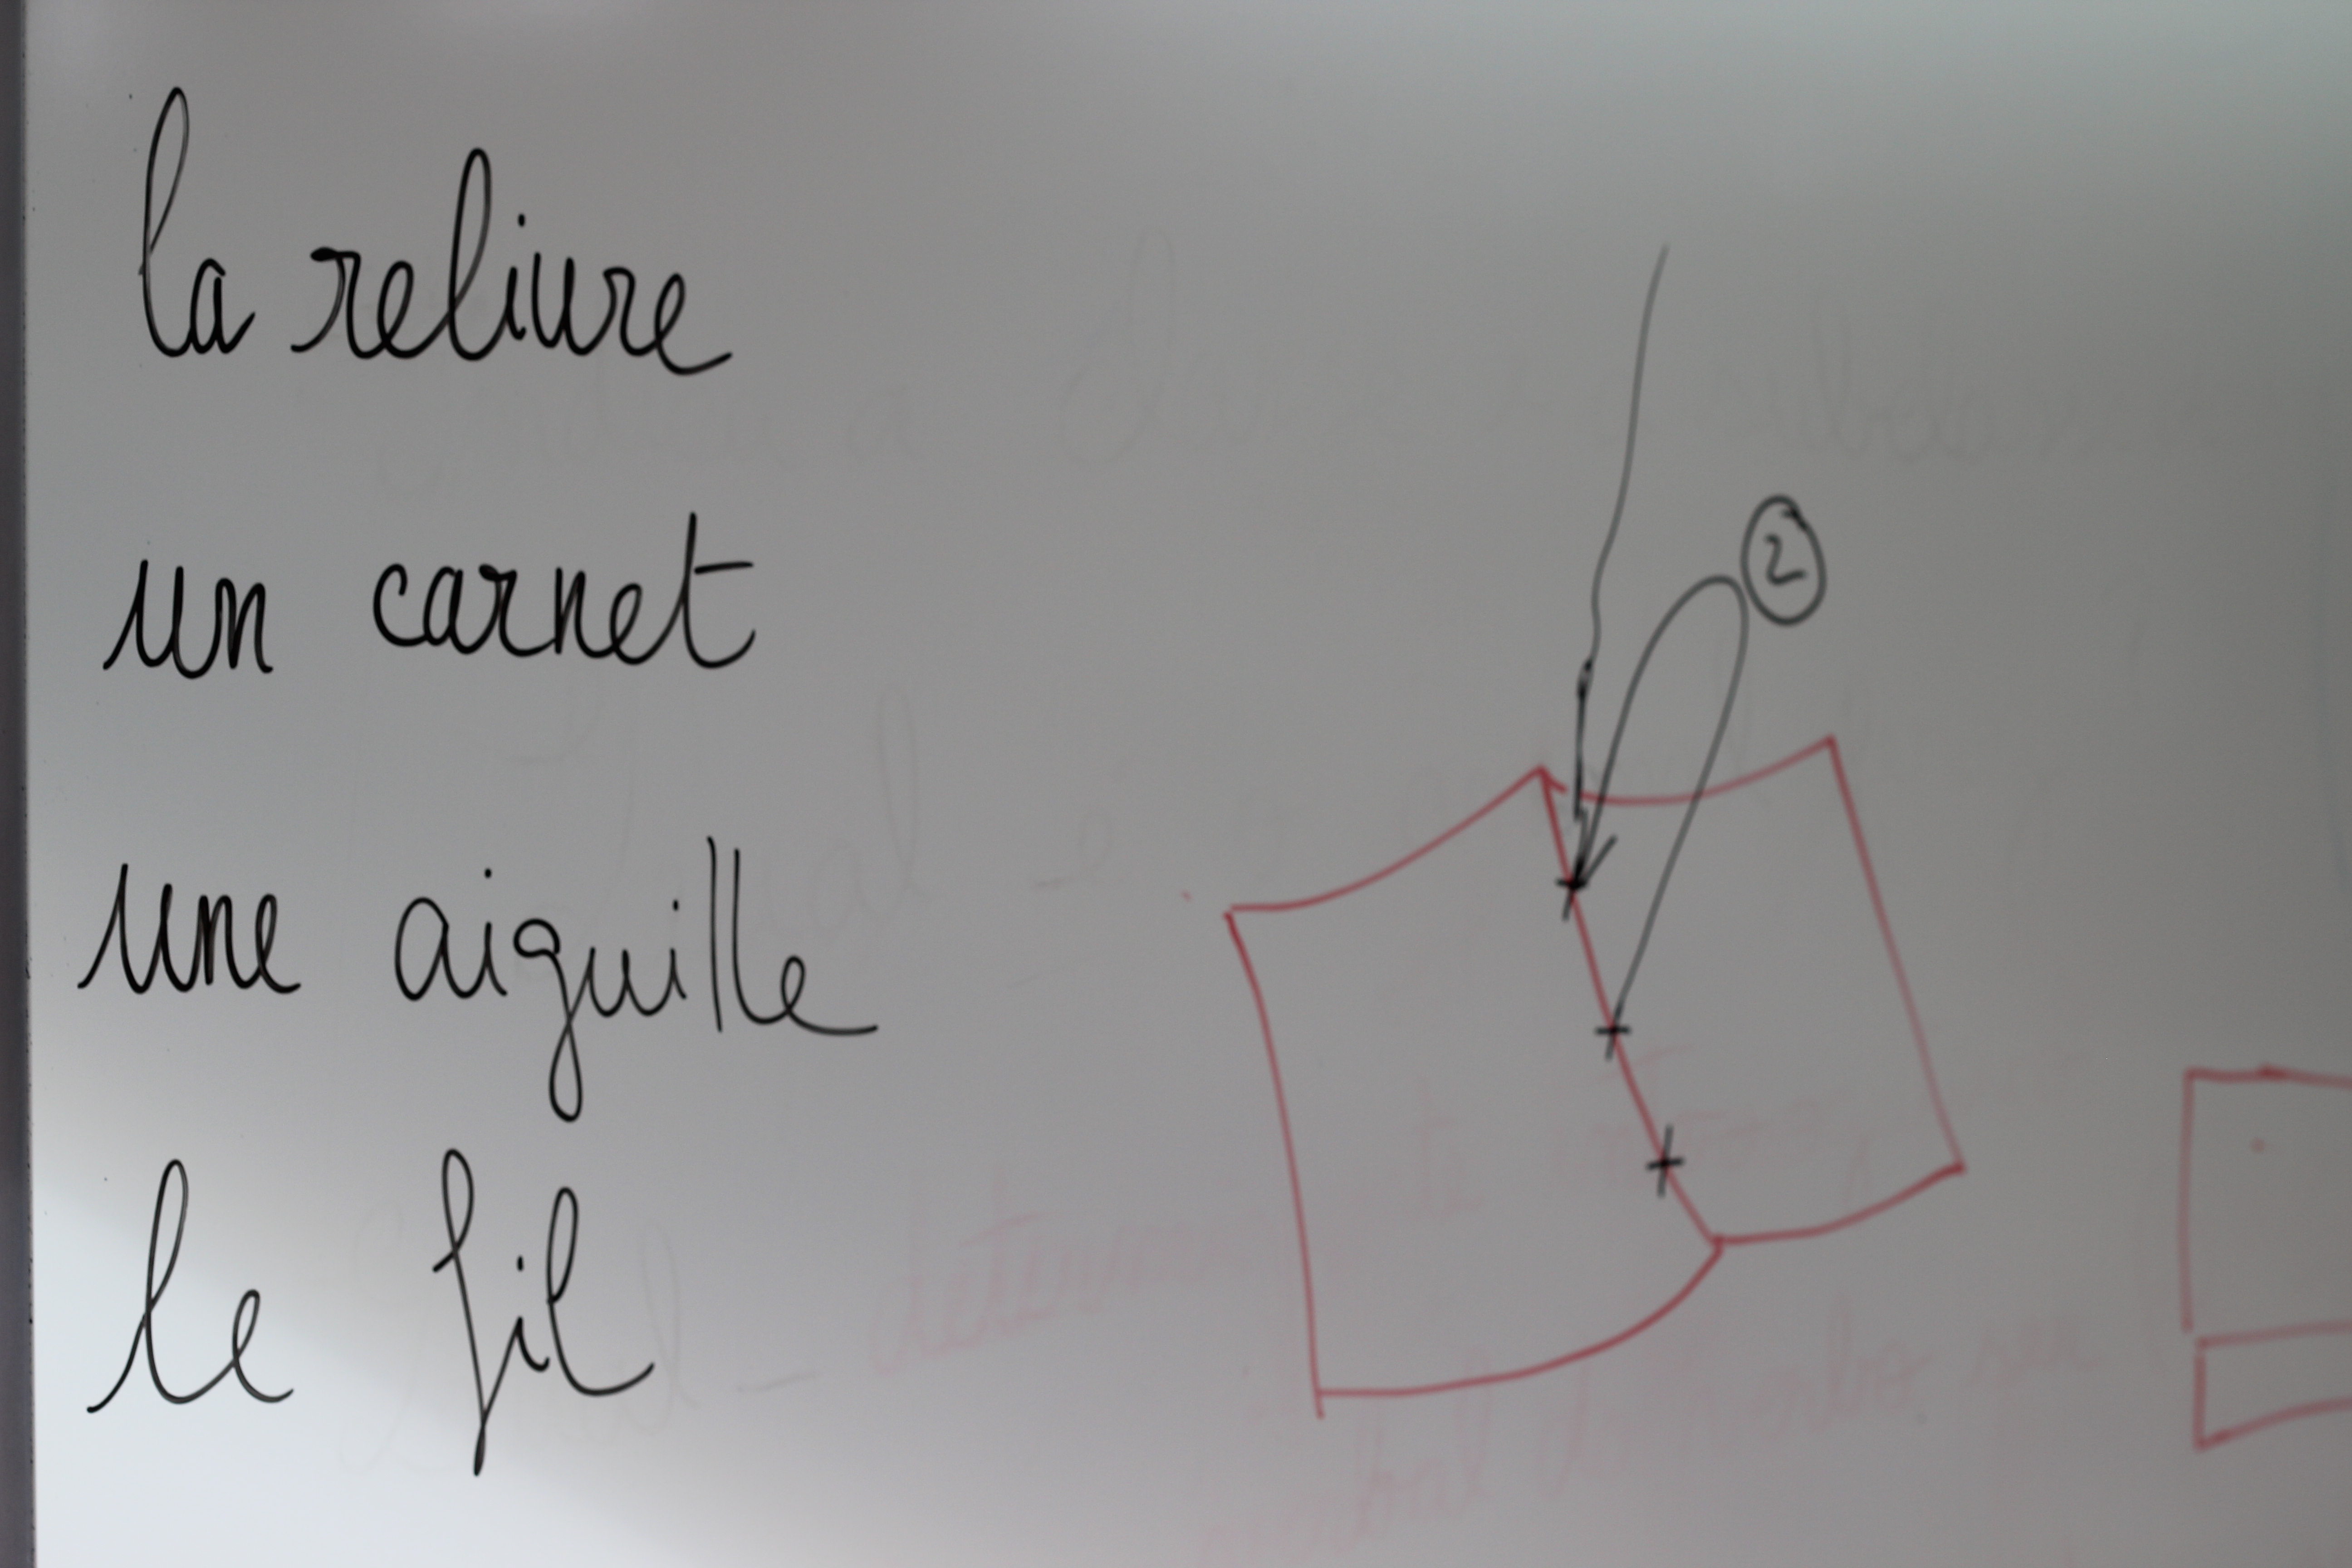 la reliure
un carnet
2
une aiguille
le fil